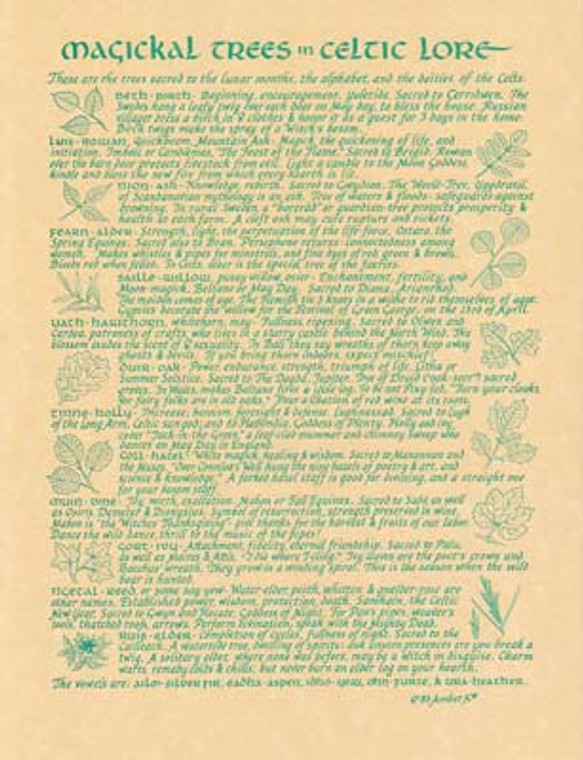 magickal trees in celtic lore
These are the trees sacred to the lunar months, the alphabet, and the deities of the Celts.
Beth-Birch- Beginning, encouragement. Yuletide. Sacred to Cerridwen. The
Swedes hang a leafy twig over each door on May day, to bless the house. Russian
villages dress a birch in clothes & honor it as a guest for 3 days in the home.
Birch twigs make the spray of a Witch's besom.
Luis-Rowan, Quickbeam, Mountain Ash- Magick, the quickening of life, and
initiation. Imbolc or Candlemas, "The Feast of the Flame." Sacred to Brigid. Rowan
over the barn door protects livestock from evil. Light a candle to the Moon Goddess.
Kindle and bless the new fire from which every hearth is lit.
Nion-Ash- Knowledge, rebirth. Sacred to Gwydion. The World-Tree, Yggdrasil,
of Scandinavian mythology is an ash. Tree of waters & floods- safeguards against
drowning. In rural Sweden, a guardian-tree protects prosperity &
health on each farm. A cleft ash may cure rupture and rickets.
Fearn-Alder- Strength, light, the perpetuation of the life force, Ostara, the
Spring Equinox. Sacred also to Bran. Persephone returns- connectedness among
women. Makes whistles & pipes for minstrels, and fine dyes of red green & brown.
Bleeds red when felled. To Celts, alder is the special tree of the faeries.
Saille-Willow, pussy willow, osier- Enchantment, fertility, and
Moon-magick. Beltane or May Day. Sacred to Diana,
The maiden comes of age. The Flemish tie 3 knots in a withe to rid themselves of ague.
Gypsies decorate the Willow for the Festival of Green George, on the 23rd of April.
Uath-Hawthorn, whitethorn, may- Fullness, ripening. Sacred to Olwen and
Cardea, patroness of crafts, who lives in a starry castle behind the North Wind. The
blossom exudes the scent of sexuality. In Bali they say wreaths of thorn keep away
ghosts & devils. If you bring them indoors, expect mischief!
Duir-Oak- Power, endurance, strength, triumph of life, Litha or
Summer Solstice. Sacred to The Dagda, Jupiter. sacred
groves. Turn your cloaks
for fairy folks are in old oaks." Pour a libation of red wine at its roots.
Tinne-Holly- Increase, heroism, foresight & defense. Lughnassad. Sacred to Lugh
of the Long Arm, Celtic sun god, and to Habondia, Goddess of Plenty. Holly and ivy
cover "Jack-in-the-Green," a leaf-clad mummer and chimney sweep who
dances on May Day in England.
Coll-Hazel- White magick, healing & wisdom. Sacred to Manannan and
the Muses. "Over Connla's Well hung the nine hazels of poetry & art, and
science & knowledge." A forked hazel staff is good for divining, and a straight one
for your besom staff.
Muin-Vine- The earth, exaltation. Mabon or Fall Equinox. Sacred to Sabe as well
as Osiris, Demeter & Dionysus. Symbol of resurrection, strength preserved in wine.
Mabon is "the Witches' Thanksgiving"- give thanks for the harvest & fruits of our labor.
Dance the wild dance, thrill to the music of the pipes!
Gort-Ivy- Attachment, fidelity, eternal friendship. Sacred to
as well as Bacchus & Attis. Ivy leaves are the poet's crown and
Bacchus' wreath. They grow in a winding spiral. This is the season when the wild
boar is hunted.
Ngetal-Reed, or some say yew- Water-elder, whitten & guelder rose are
other names. Established power, wisdom, protection, death. Samhain, the Celtic
New Year. Sacred to Gwyn and Hecate, Goddess of Night. For Pan's Pipes, weaver's
tools, thatched roof, arrows. Perform divination, speak with the Mighty Dead.
Ruis-Elder- Completion of cycles, fullness of night. Sacred to the
Cailleach. A waterside tree, dwelling of spirits- ask unseen presences ere you break a
twig. A solitary elder, where none was before, may be a witch in disguise. Charm
warts, remedy colds & chills, but never burn an elder log on your hearth.
The vowels are: Ailm-Silver Fir, Eadha-Aspen, Idho-Yew, Ohn-Furze, & Ura-Heather.
Amber K